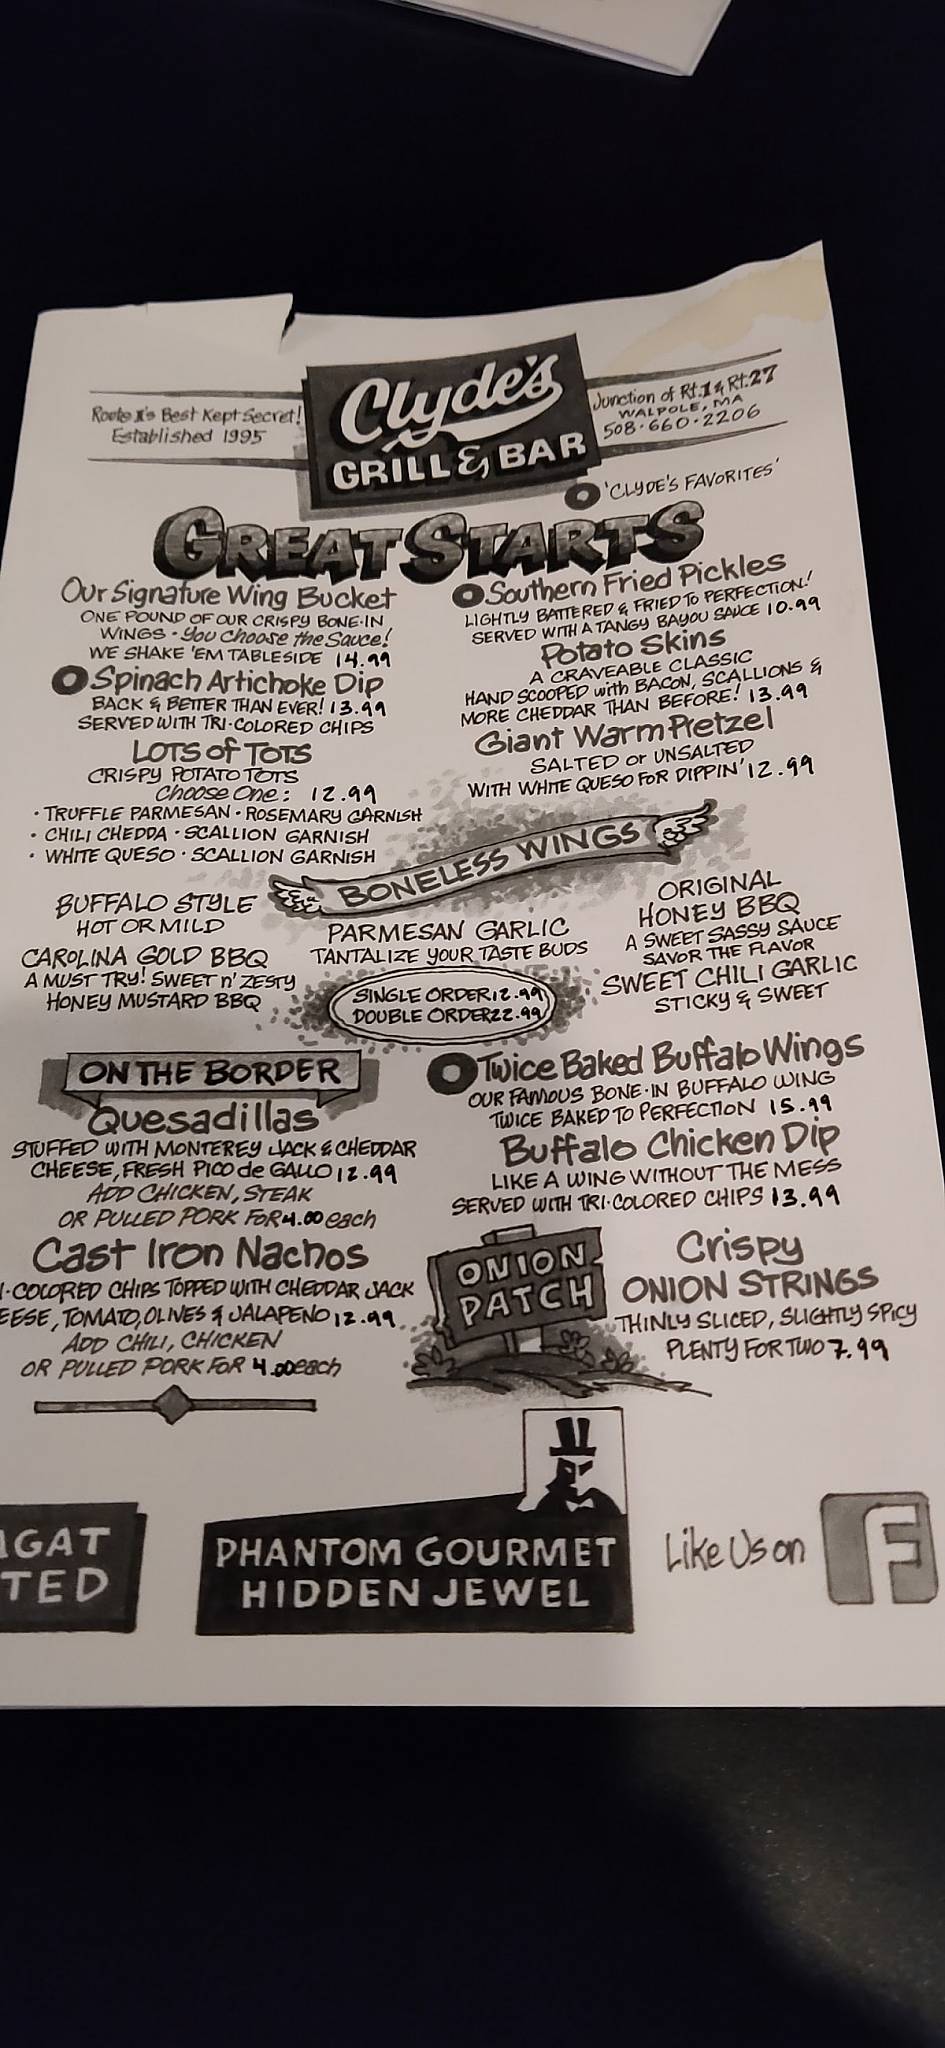 Route 1's Best Kept Secret!
Established 1995
Clyde's
GRILL & BAR
Junction of Rt.1 & Rt.27
WALPOLE, MA
508·660·2206
'CLYDE'S FAVORITES'
GREAT STARTS
Our Signature Wing Bucket
ONE POUND OF OUR CRISPY BONE-IN
WINGS · You Choose the Sauce!
WE SHAKE 'EM TABLESIDE 14.99
Spinach Artichoke Dip
BACK & BETTER THAN EVER! 13.99
SERVED WITH TRI-COLORED CHIPS
LOTS of TOTS
CRISPY POTATO TOTS
Choose One: 12.99
· TRUFFLE PARMESAN · ROSEMARY GARNISH
· CHILI CHEDDA · SCALLION GARNISH
· WHITE QUESO · SCALLION GARNISH
Southern Fried Pickles
LIGHTLY BATTERED & FRIED TO PERFECTION!
SERVED WITH A TANGY BAYOU SAUCE 10.99
Potato Skins
A CRAVEABLE CLASSIC
HAND SCOOPED with BACON, SCALLIONS &
MORE CHEDDAR THAN BEFORE! 13.99
Giant Warm Pretzel
SALTED or UNSALTED
WITH WHITE QUESO FOR DIPPIN' 12.99
BONELESS WINGS
BUFFALO STYLE
HOT OR MILD
CAROLINA GOLD BBQ
A MUST TRY! SWEET n' ZESTY
HONEY MUSTARD BBQ
PARMESAN GARLIC
TANTALIZE YOUR TASTE BUDS
SINGLE ORDER 12.99
DOUBLE ORDER 22.99
ORIGINAL
HONEY BBQ
A SWEET SASSY SAUCE
SAVOR THE FLAVOR
SWEET CHILI GARLIC
STICKY & SWEET
ON THE BORDER
Quesadillas
STUFFED WITH MONTEREY JACK & CHEDDAR
CHEESE, FRESH PICO de GALLO 12.99
ADD CHICKEN, STEAK
OR PULLED PORK FOR 4.00 each
Cast Iron Nachos
I-COLORED CHIPS TOPPED WITH CHEDDAR JACK
EESE, TOMATO, OLIVES & JALAPENO 12.99
ADD CHILI, CHICKEN
OR PULLED PORK FOR 4.00 each
Twice Baked Buffalo Wings
OUR FAMOUS BONE-IN BUFFALO WING
TWICE BAKED TO PERFECTION 15.99
Buffalo Chicken Dip
LIKE A WING WITHOUT THE MESS
SERVED WITH TRI-COLORED CHIPS 13.99
ONION
PATCH
Crispy
ONION STRINGS
THINLY SLICED, SLIGHTLY SPICY
PLENTY FOR TWO 7.99
GAT
TED
PHANTOM GOURMET
HIDDEN JEWEL
Like Us on